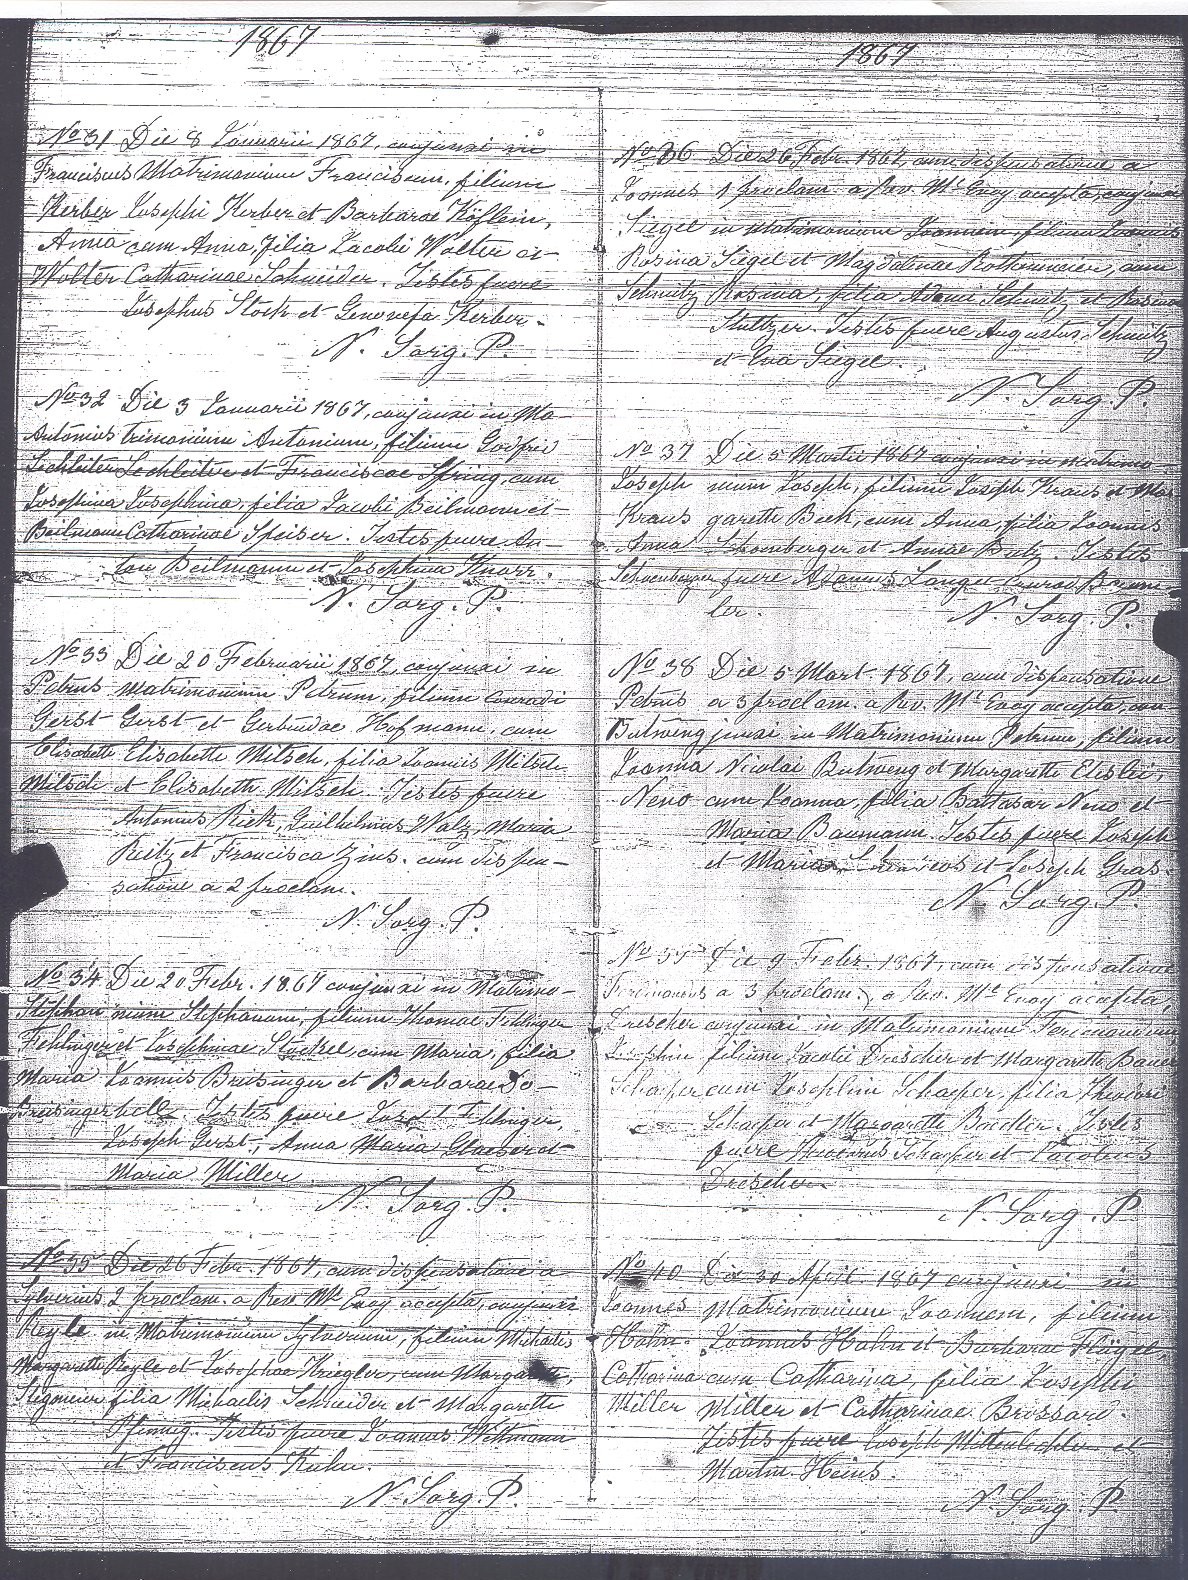 1867
No 31 Die 8 Januarii 1867, conjunxi in
Franciscus Matrimonium Franciscum, filium
Kerber Josephi Kerber et Barbarae Köflein,
Anna cum Anna, filia Jacobi Wolter et
Wolter Catharinae Schneider. Testes fuere
Josephus Stock et Genovefa Kerber.
N. Sorg. P.
No 32 Die 3 Januarii 1867, conjunxi in Ma-
Antonius trimonium Antonium, filium Godfrid
Lechleiter Lechleiter et Franciscae Spring, cum
Josephina Josephina, filia Jacobi Beilmann et
Beilmann Catharinae Speiser. Testes fuere An-
ton Beilmann et Josephina Knarr.
N. Sorg. P.
No 33 Die 20 Februarii 1867, conjunxi in
Petrus matrimonium Petrum, filium Conradi
Gerst Gerst et Gertrudae Hofmann, cum
Elisabetha Elisabetha Mitsch, filia Joannis Mitsch
Mitsch et Elisabeth Mitsch. Testes fuere
Antonius Rick, Guilhelmus Walz, Maria
Reitz et Francisca Zins. cum dispen-
satione a 2 proclam.
N. Sorg. P.
No 34 Die 20 Febr. 1867 conjunxi in Matrimo-
Stephan nium Stephanum, filium Thomae Fehlinger
Fehlinger et Josephinae Stockel, cum Maria, filia
Maria Joannis Breisinger et Barbarae Do-
Breisinger bell. Testes fuere Joseph Fehlinger,
Joseph Gerst, Anna Maria Glaeser et
Maria Miller
N. Sorg. P.
No 35 Die 26 Febr. 1867, cum dispensatione a
Sylverius 2 proclam. a Rev. Mc Evoy accepta, conjunxi
Reyle in Matrimonium Sylverium, filium Michaelis
Margaretha Reyle et Josephae Kriegler, cum Margaretha,
filia Michaelis Schneider et Margaretha
Pfennig. Testes fuere Joannes Wittmann
et Franciscus Kuhn.
N. Sorg. P.
1867
No 36 Die 26 Febr. 1867, cum dispensatione a
Joannes 1 proclam. a Rev. Mc Evoy accepta, conjunxi
Siegel in Matrimonium Joannem, filium Joannis
Rosina Siegel et Magdalenae Rothenmeier, cum
Schmitz Rosina, filia Adami Schmitz et Rosina
Stultzer. Testes fuere Augustus Schmitz
et Eva Siegel.
N. Sorg. P.
No 37 Die 5 Martii 1867 conjunxi in matrimo-
Joseph nium Joseph, filium Joseph Kraus et Mar
Kraus gareth Beck, cum Anna, filia Joannis
Anna Schoenberger et Annae Butz. Testes
Schoenberger fuere Adamus Lang et
ler.
N. Sorg. P.
No 38 Die 5 Mart. 1867, cum dispensatione
Petrus a 3 proclam. a Rev. Mc Evoy accepta, con-
Butweng junxi in Matrimonium Petrum, filium
Joanna Nicolai Butweng et Margaretha Elislei,
Neno cum Joanna, filia Baltasar Neno et
Maria Baumann. Testes fuere Joseph
et Maria et Joseph Gras.
N. Sorg. P.
No 39 Die 9 Febr. 1867, cum dispensatione
Ferdinandus a 3 proclam. a Rev. Mc Evoy accepta,
Drescher conjunxi in Matrimonium Ferdinandum,
Josephin filium Jacobi Drescher et Margareth Bauer
Schaefer cum Josephin Schaefer, filia Theodori
Schaefer et Margaretha Boedler. Testes
fuere Theodorus Schaefer et Jacobus
Drescher.
N. Sorg. P
No 40 Die 30 April. 1867 conjunxi in
Joannes Matrimonium Joannem, filium
Hahn. Joannis Hahn et Barbarae Flügel,
Catharina cum Catharina, filia Josephi
Miller Miller et Catharinae Brissard.
Testes fuere Joseph Mittenbühler et
Martin Heins.
N. Sorg. P.